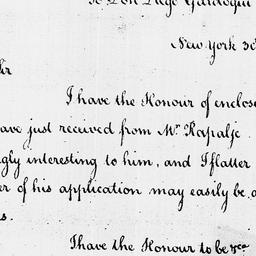 Don Diego Gardoqui
New York 30
Sir
I have the Honour of enclos
ave just received from Mr. Rapalje.
gly interesting to him, and I flatter
er of his application may easily be a
s.
I have the Honour to be &ca